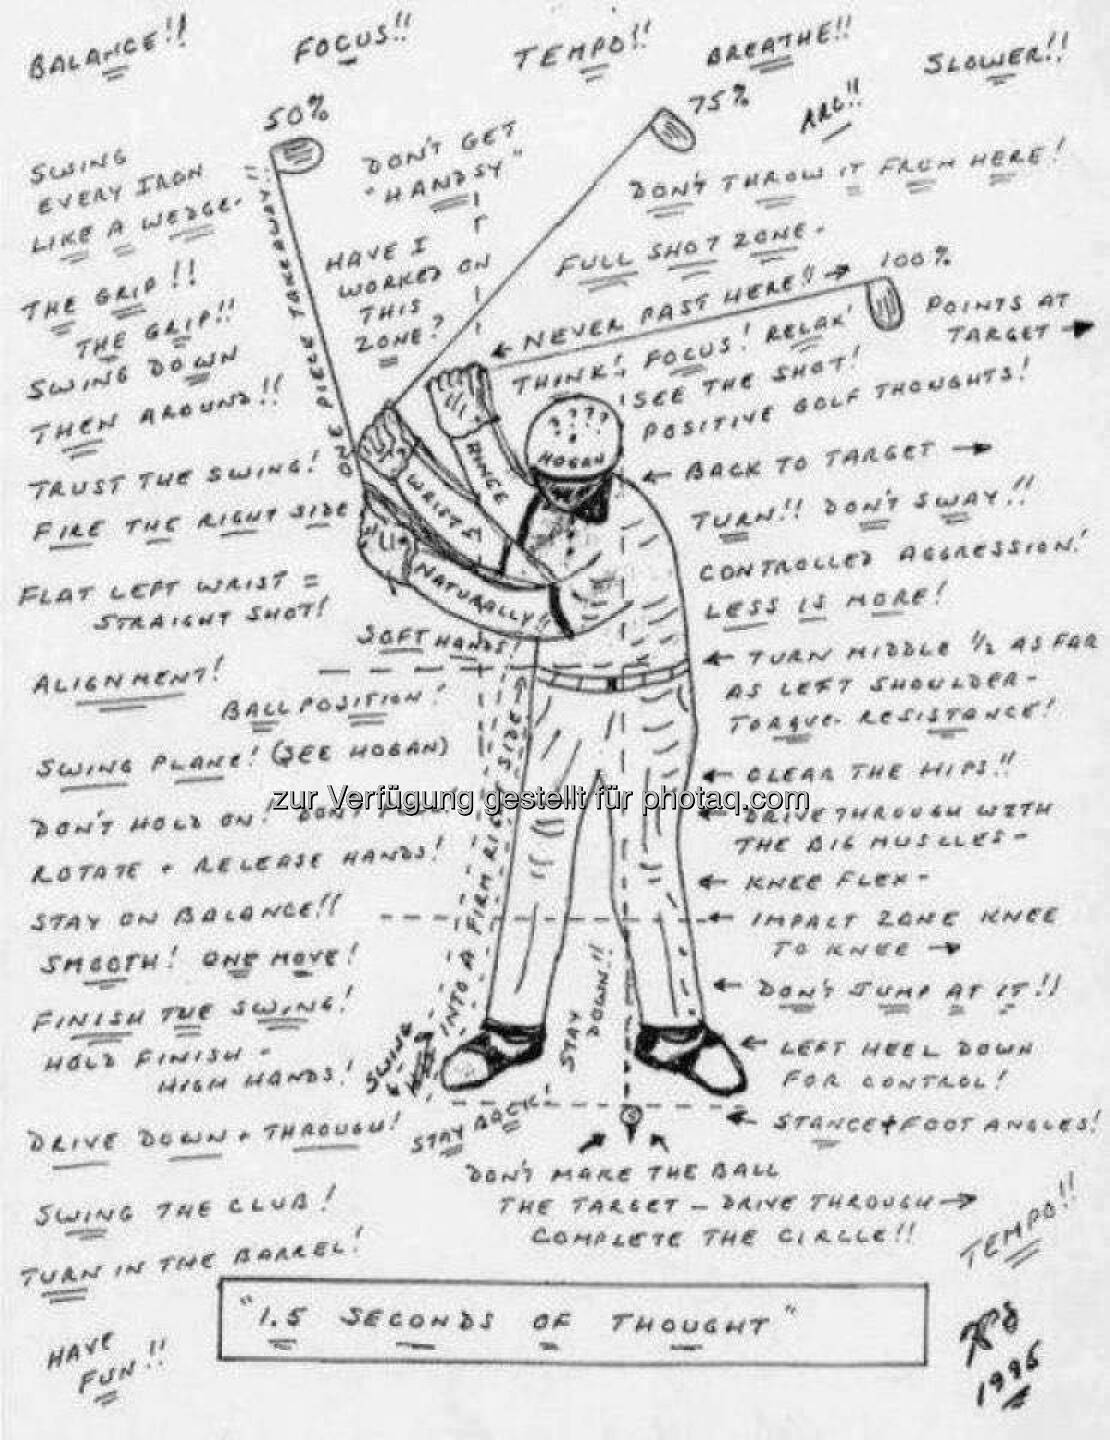 BALANCE!!
FOCUS!!
TEMPO!!
BREATHE!!
SLOWER!!
50%
75%
ARC!!
SWING
EVERY IRON
LIKE A WEDGE-
ONE PIECE TAKEAWAY!!
DON'T GET
"HANDSY"
DON'T THROW IT FROM HERE!
HAVE I
WORKED ON
THIS
ZONE?
FULL SHOT ZONE-
← NEVER PAST HERE!! →
100%
POINTS AT
TARGET →
THE GRIP!!
THE GRIP!!
SWING DOWN
THEN AROUND!!
THINK! FOCUS! RELAX!
SEE THE SHOT!
POSITIVE GOLF THOUGHTS!
? ? ? ?
HOGAN
HINGE
WRISTS
NATURALLY!!
TRUST THE SWING!
FIRE THE RIGHT SIDE
FLAT LEFT WRIST =
STRAIGHT SHOT!
SOFT HANDS!
ALIGNMENT!
BALL POSITION!
SWING PLANE! (SEE HOGAN)
DON'T HOLD ON! DON'T
ROTATE + RELEASE HANDS!
STAY ON BALANCE!!
SMOOTH! ONE MOVE!
FINISH THE SWING!
HOLD FINISH -
HIGH HANDS!
DRIVE DOWN + THROUGH!
SWING THE CLUB!
TURN IN THE BARREL!
HAVE
FUN!!
← BACK TO TARGET →
TURN!! DON'T SWAY!!
CONTROLLED AGGRESSION!
LESS IS MORE!
← TURN MIDDLE 1/2 AS FAR
AS LEFT SHOULDER-
TORQUE- RESISTANCE!
← CLEAR THE HIPS!!
← DRIVE THROUGH WITH
THE BIG MUSCLES-
← KNEE FLEX-
← IMPACT ZONE KNEE
TO KNEE →
← DON'T JUMP AT IT!!
← LEFT HEEL DOWN
FOR CONTROL!
← STANCE + FOOT ANGLES!
SWING
INTO A FIRM RIGHT SIDE
STAY
DOWN!!
STAY BACK!
DON'T MAKE THE BALL
THE TARGET - DRIVE THROUGH →
COMPLETE THE CIRCLE!!
TEMPO!!
"1.5 SECONDS OF THOUGHT"
1995
zur Verfügung gestellt für photaq.com